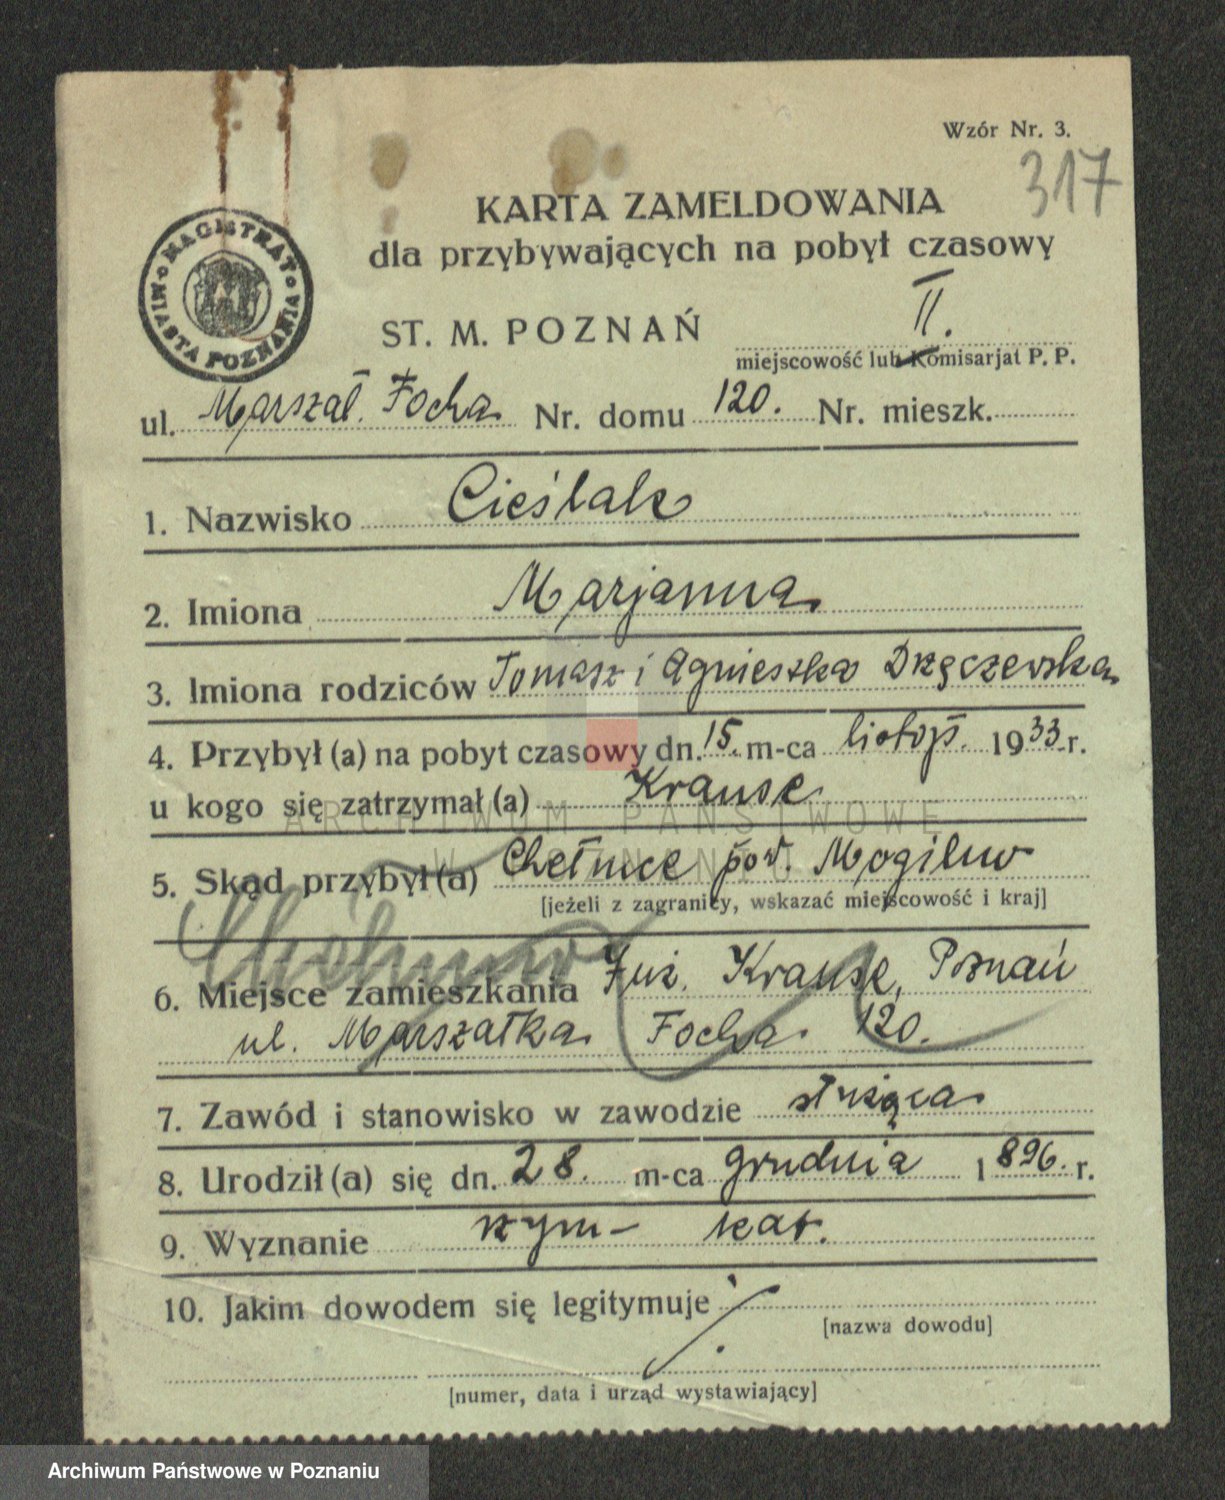 Wzór Nr. 3.
317
KARTA ZAMELDOWANIA
dla przybywających na pobyt czasowy
MAGISTRAT MIASTA POZNANIA
ST. M. POZNAŃ II.
miejscowość lub Komisarjat P. P.
ul. Marszał. Focha Nr. domu 120. Nr. mieszk.
1. Nazwisko Cieślak
2. Imiona Marjanna
3. Imiona rodziców Tomasz i Agnieszka Drzęczewska
4. Przybył (a) na pobyt czasowy dn. 15. m-ca listop. 1933 r.
u kogo się zatrzymał (a) Krause
ARCHIWUM PAŃSTWOWE
W POZNANIU
5. Skąd przybył (a) Chełmce pow. Mogilno
[jeżeli z zagranicy, wskazać miejscowość i kraj]
6. Miejsce zamieszkania Inż. Krause, Poznań
ul. Marszałka Focha 120.
7. Zawód i stanowisko w zawodzie służąca
8. Urodził (a) się dn. 28. m-ca grudnia 1896. r.
9. Wyznanie rzym- kat.
10. Jakim dowodem się legitymuje
[nazwa dowodu]
[numer, data i urząd wystawiający]
Archiwum Państwowe w Poznaniu